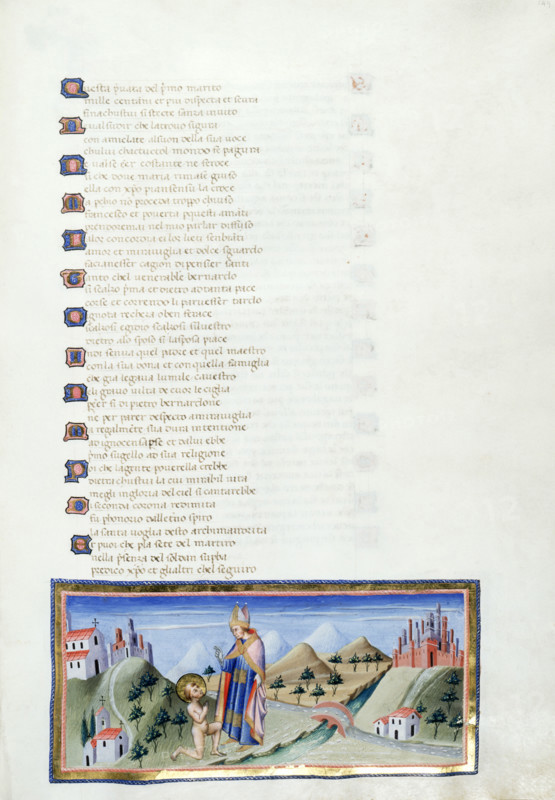 Questa pvata del pmo marito
mille centani et piu dispecta et scura
sinachustui si stecte sanza invito
Ne valse udir che latrovo sigura
con amiclate alsuon della sua voce
cholui chactuctol mondo fe paguri
Ne valse eer costante ne feroce
si che dove maria rimase giuso
ella con xpo pianse insu la croce
Ma pchio no proceda troppo chiuso
francesco et poverta p questi amati
prendi omai nel mio parlar diffuso
La lor concordia ei lor lieti senbiati
amor et miraviglia et dolce sguardo
facieno esser cagion di pensier santi
Tanto chel venerabile bernardo
si scalzo pma et dietro ad tanta pace
corse et correndo li parve esser tardo
O ignota richeça o ben ferace
scalzasi egidio scalzasi silvestro
dietro alo sposo si lasposa piace
Indi senva quel padre et quel maestro
conla sua dona et con quella famiglia
che gia legava lumile capestro
Ne li gravo vilta de cuor le ciglia
p eer fi di pietro bernardone
ne per parer despecto a miraviglia
Ma regalmente sua dura intentione
ad innocentio apse et da lui ebbe
pmo sugello ad sua religione
Poi che lagente poverella crebbe
dietro achustui la cui mirabil vita
megli ingloria del ciel si cantarebbe
Di seconda corona redimita
fu p honorio dalletno spiro
la santa voglia desto archimandrita
Et puoi che pla sete del martiro
nella psenza del soldan supba
predico xpo et glialtri chel seguiro